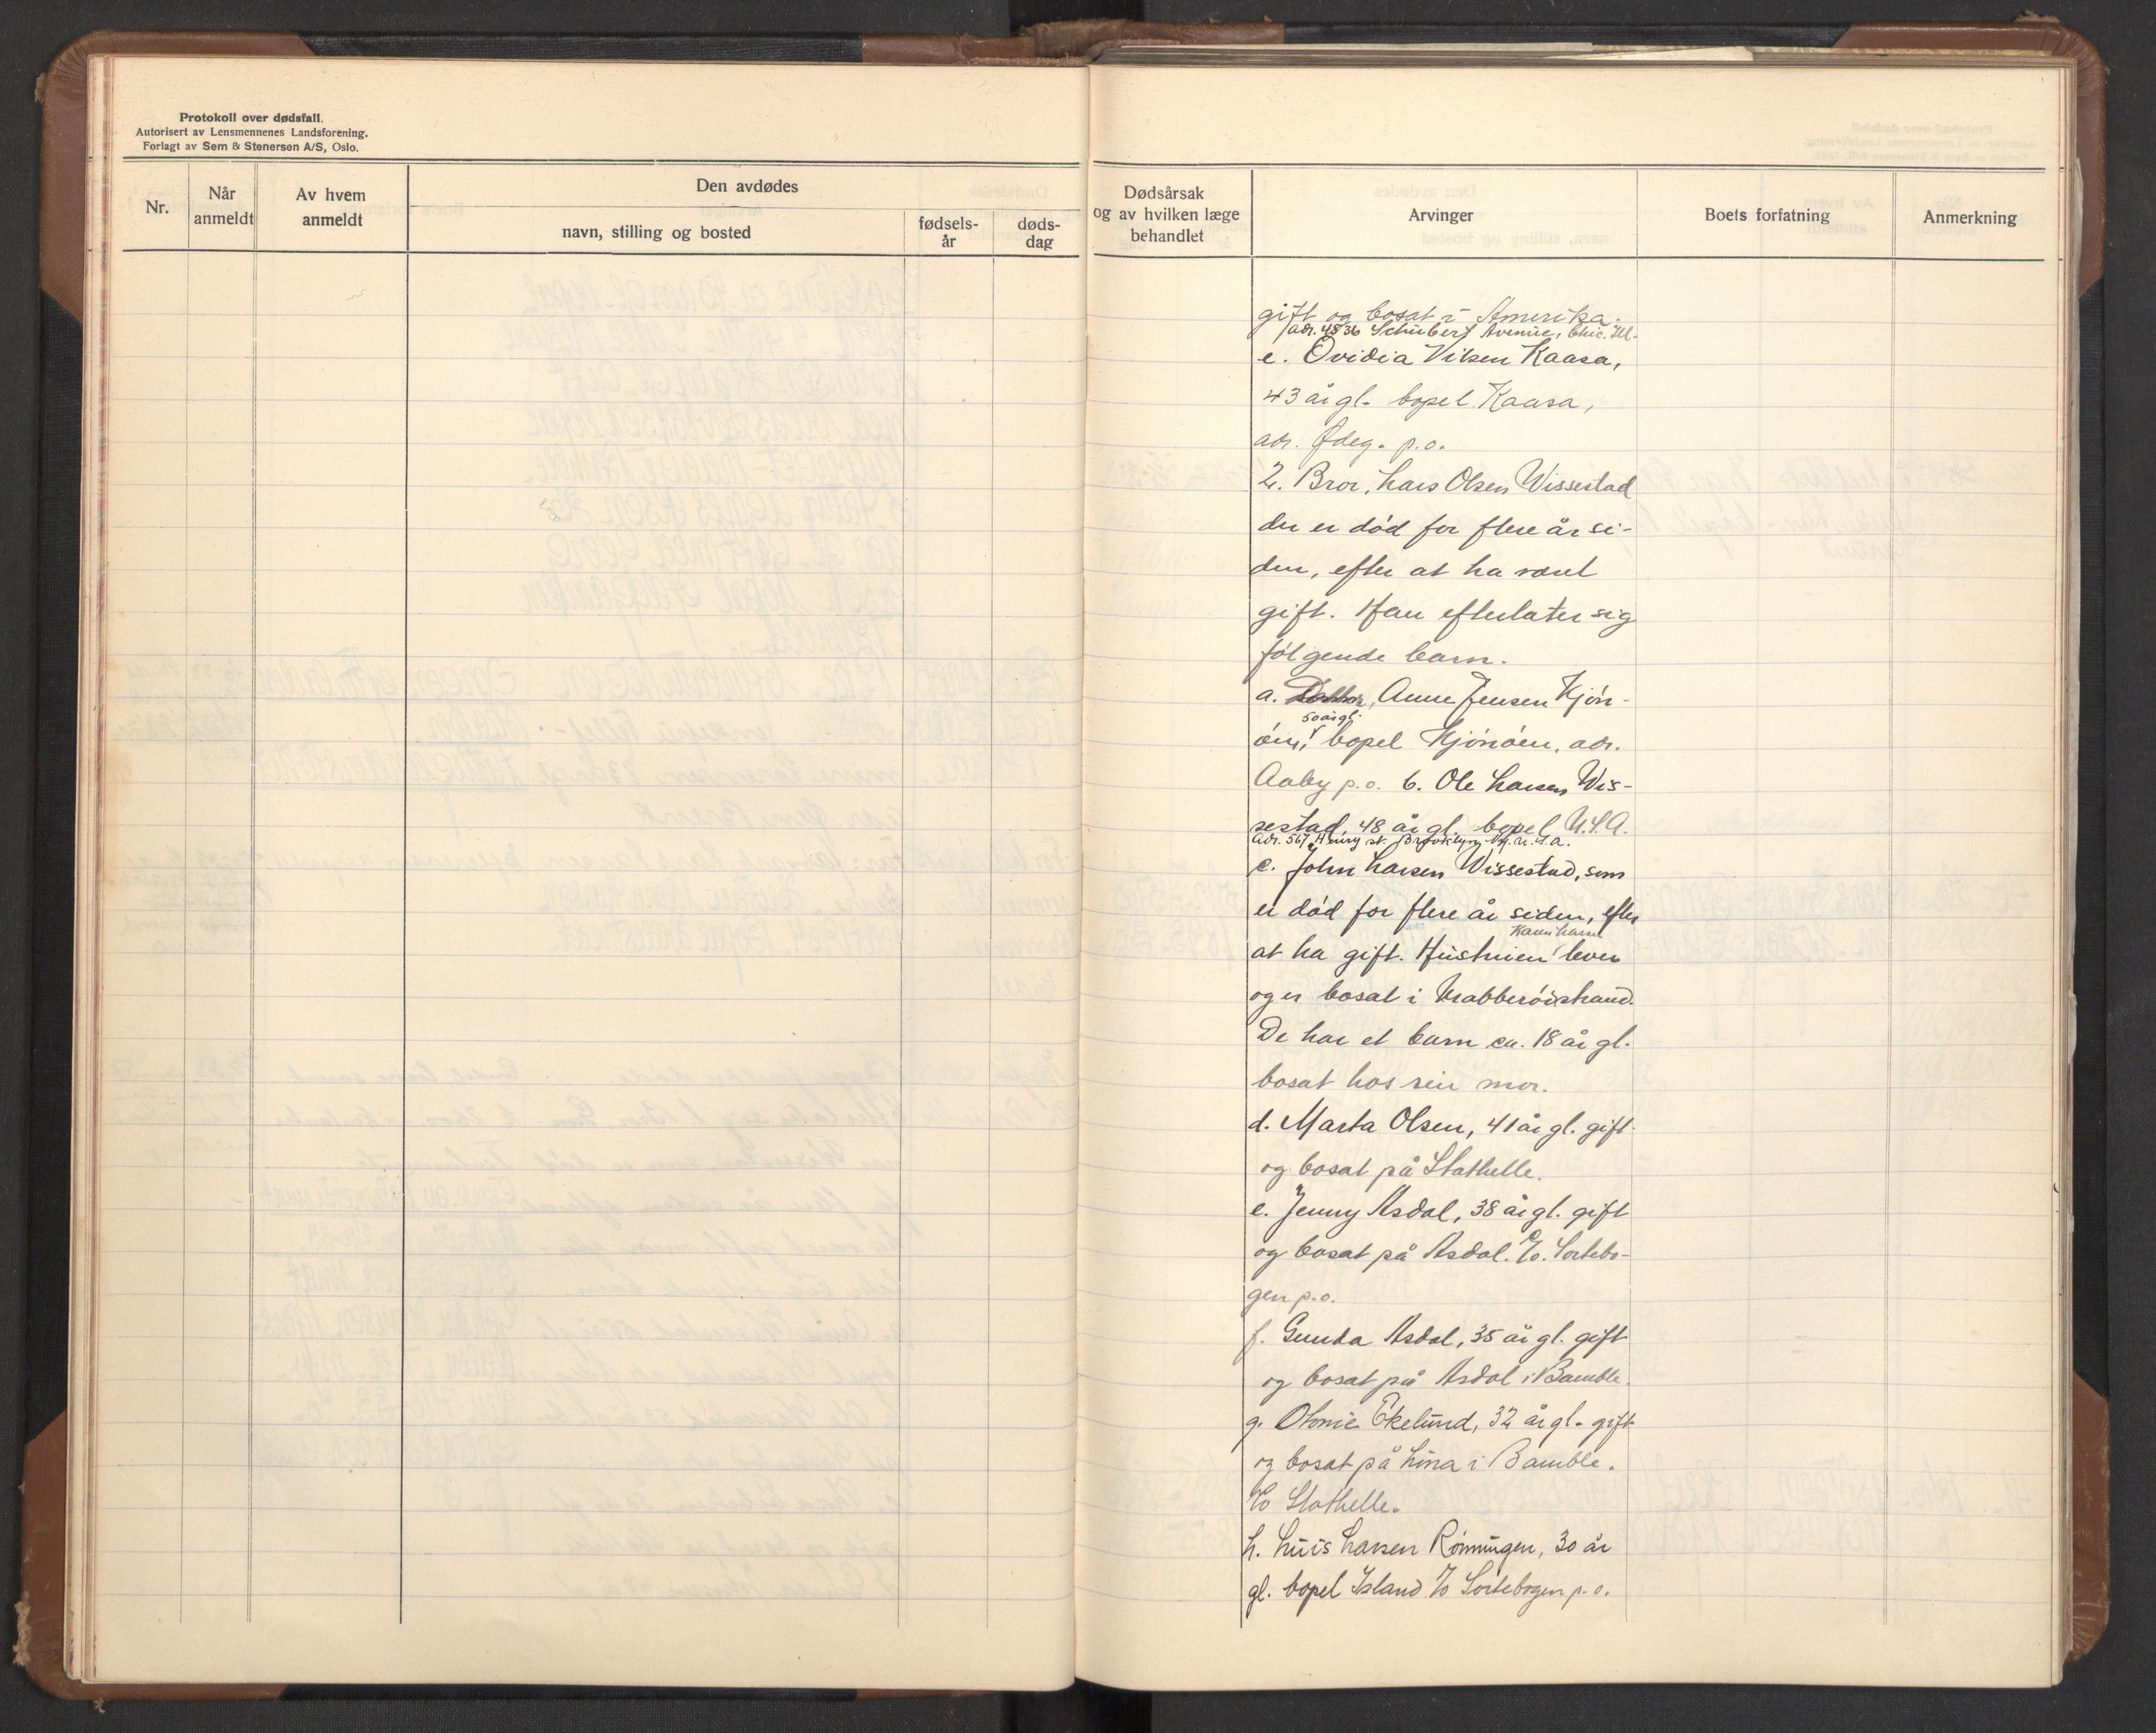 Protokoll over dødsfall.
Autorisert av Lensmennenes Landsforening.
Forlagt av Sem & Stenersen A/S, Oslo.
Nr.
Når
anmeldt
Av hvem
anmeldt
Den avdødes
navn, stilling og bosted
fødsels-
år
døds-
dag
Dødsårsak
og av hvilken læge
behandlet
Arvinger
Boets forfatning
Anmerkning
gift og bosat i Amerika.
adr. 4836 Schubert Avenue, Chic. Ill.
e. Ovidia Vilsen Kaasa,
43 år gl. bopel Kaasa,
adr. Ødeg. p.o.
2. Bror, Lars Olsen Wissestad
der er død for flere år si-
den, efter at ha vært
gift. Han efterlater sig
følgende barn.
a. Anne Jensen Kjøn-
50 år gl.
øen, bopel Kjönöen, adr.
Aaby p.o. b. Ole Larsen Wis-
sestad, 48 år gl. bopel U.S.A.
Adr. 567 Henry st. Brooklyn N.Y. U.S.A.
c. John Larsen Wissestad, som
er død for flere år siden, efter
at ha gift. Hustruen lever
og er bosat i Krabberöistrand.
De har et barn ca. 18 år gl.
bosat hos sin mor.
d. Marta Olsen, 41 år gl. gift
og bosat på Stathelle.
e. Jenny Asdal, 38 år gl. gift
og bosat på Asdal. Pr. Sortebo-
gen p.o.
f. Gunda Asdal, 35 år gl. gift
og bosat på Asdal i Bamble.
g. Otonie Ekelund, 32 år gl. gift
og bosat på Lina i Bamble.
Stathelle.
h. Luis Larsen Rønningen, 30 år
gl. bopel Island Sortebogen p.o.